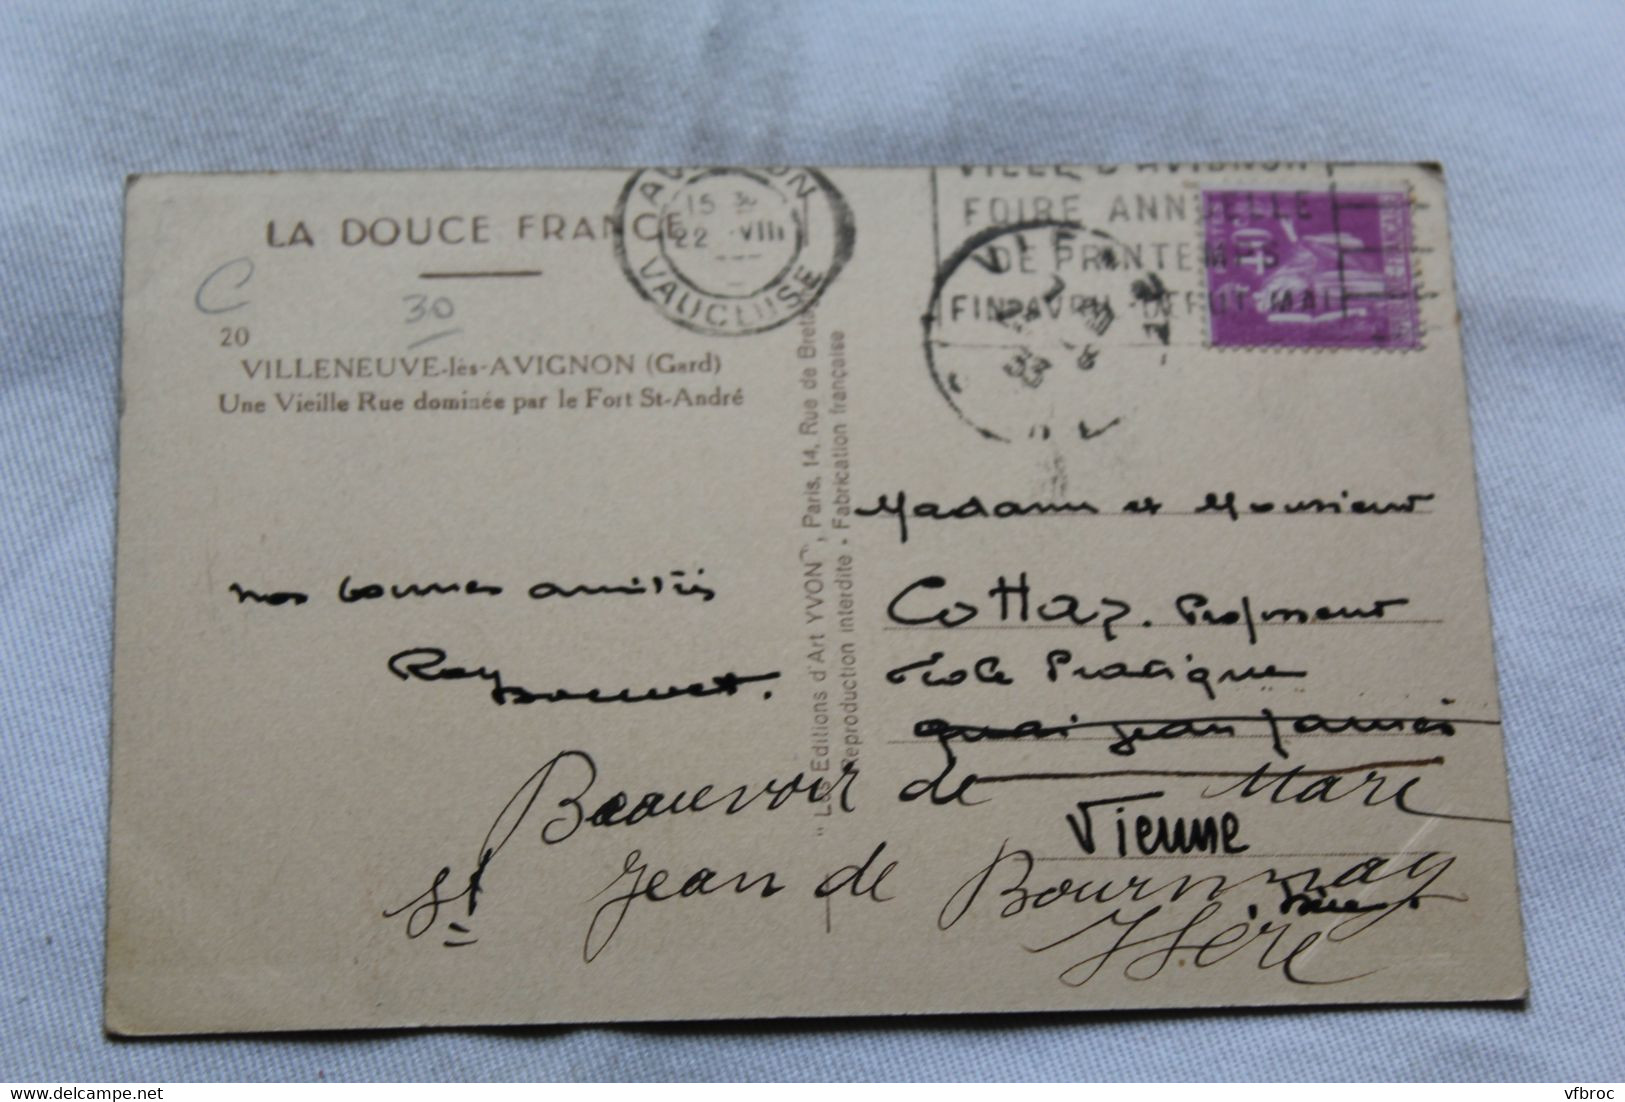 LA DOUCE FRANCE
C
30
20
VILLENEUVE-lès-AVIGNON (Gard)
Une Vieille Rue dominée par le Fort St-André
AVIGNON
15
22 VIII
VAUCLUSE
VILLE D'AVIGNON
FOIRE ANNUELLE
DE PRINTEMPS
FIN AVRIL-DEBUT MAI
33
"Les Editions d'Art YVON", Paris, 14, Rue de Bretagne
Reproduction interdite - Fabrication française
nos bonnes amitiés
Madame et Monsieur
Cottaz. Professeur
Ecole Pratique
quai Jean Jaurès
Beauvoir de Marc
Vienne
St Jean de Bournnay
Isère
Delcampe.net
vfbroc